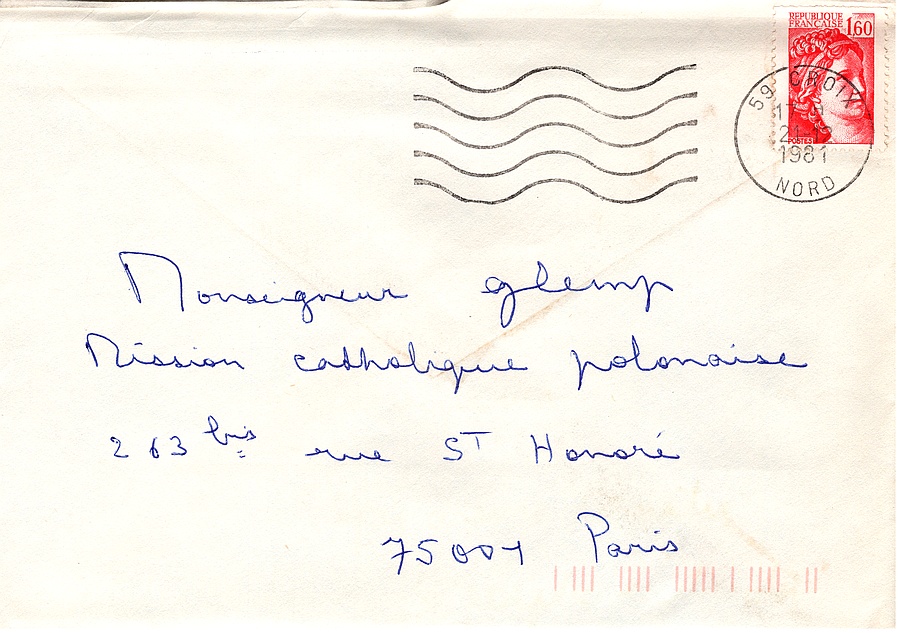 REPUBLIQUE
FRANÇAISE 1,60
POSTES
59 CROIX
1981
NORD
Monseigneur glemp
Mission catholique polonaise
263 bis rue ST Honoré
75001 Paris